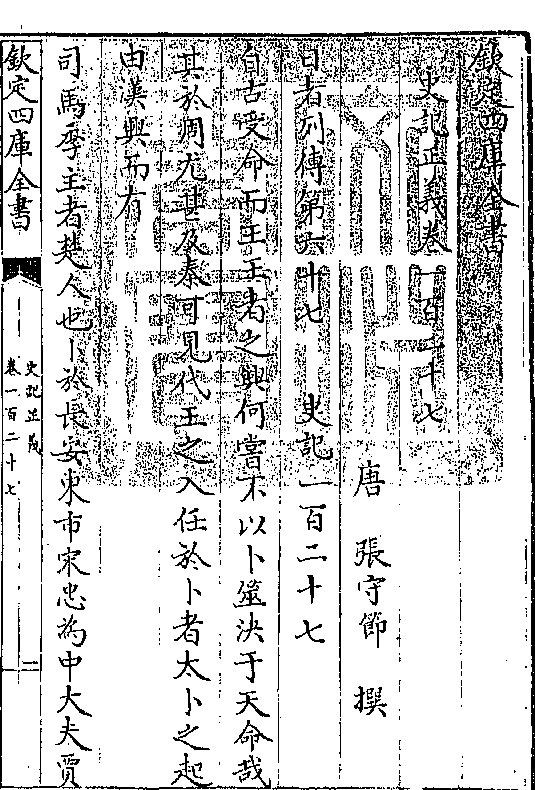 欽定四庫全書
史記正義卷一百二十七
唐 張守節 撰
日者列傳第六十七 史記一百二十七
自古受命而王王者之興何嘗不以卜筮決于天命哉
其於周尤甚及秦可見代王之入任於卜者太卜之起
由漢興而有
司馬季主者楚人也卜於長安東市宋忠為中大夫賈
欽定四庫全書
史記正義
卷一百二十七
一